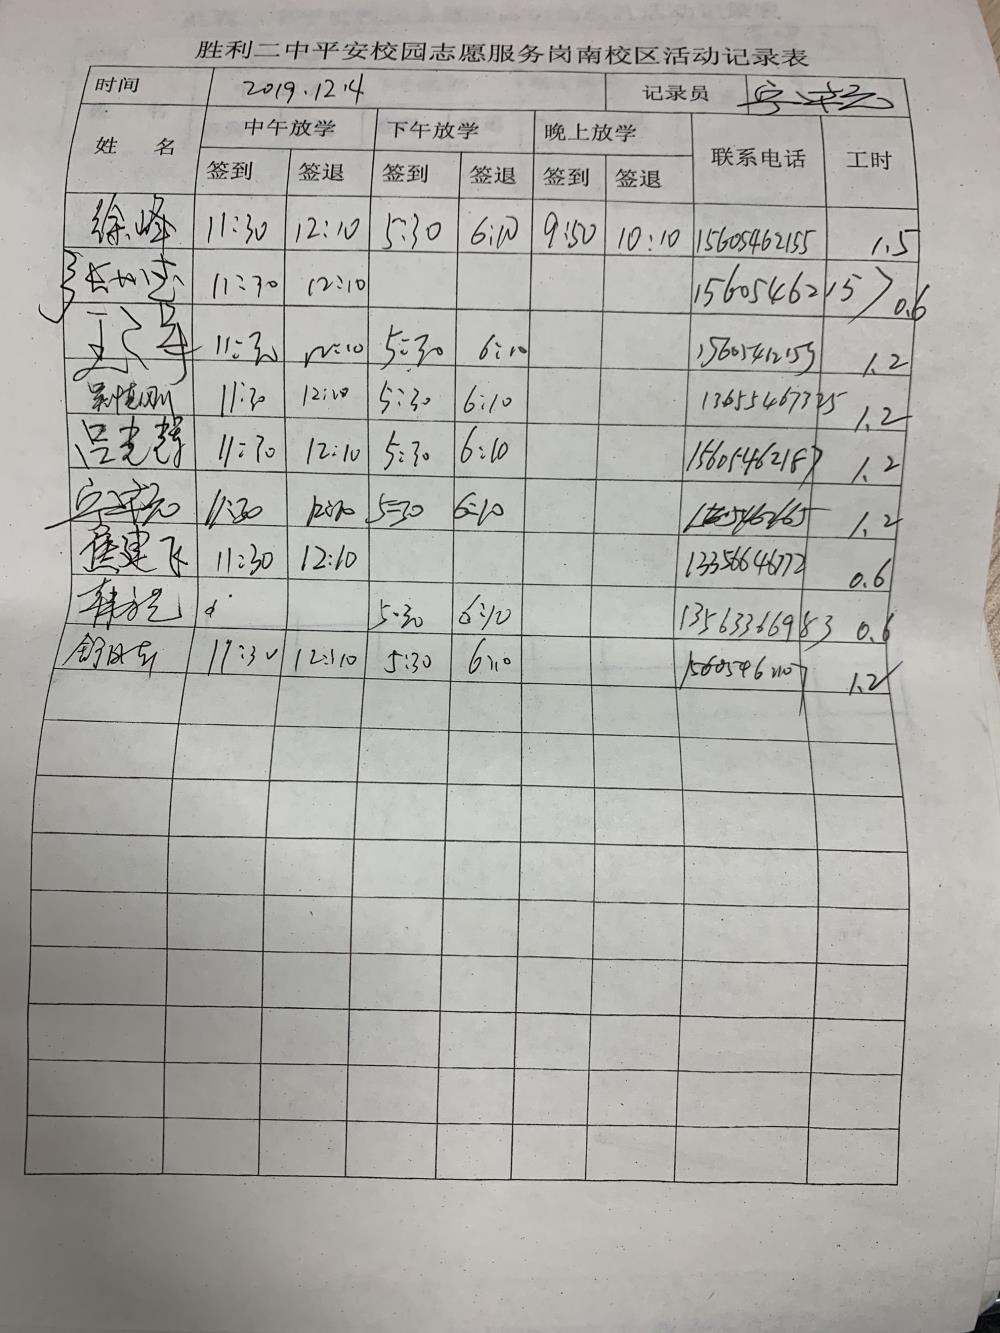 胜利二中平安校园志愿服务岗南校区活动记录表
时间 2019.12.4 记录员
姓 名 中午放学 下午放学 晚上放学 联系电话 工时
签到 签退 签到 签退 签到 签退
徐峰 11:30 12:10 5:30 6:10 9:50 10:10 15605462155 1.5
11:30 12:10 0.6
11:30 12:10 5:30 6:10 1.2
11:30 12:10 5:30 6:10 1.2
吕光辉 11:30 12:10 5:30 6:10 15605462187 1.2
11:30 12:10 5:30 6:10 1.2
焦建飞 11:30 12:10 13356646772 0.6
5:30 6:10 13563366983 0.6
11:30 12:10 5:30 6:10 1.2